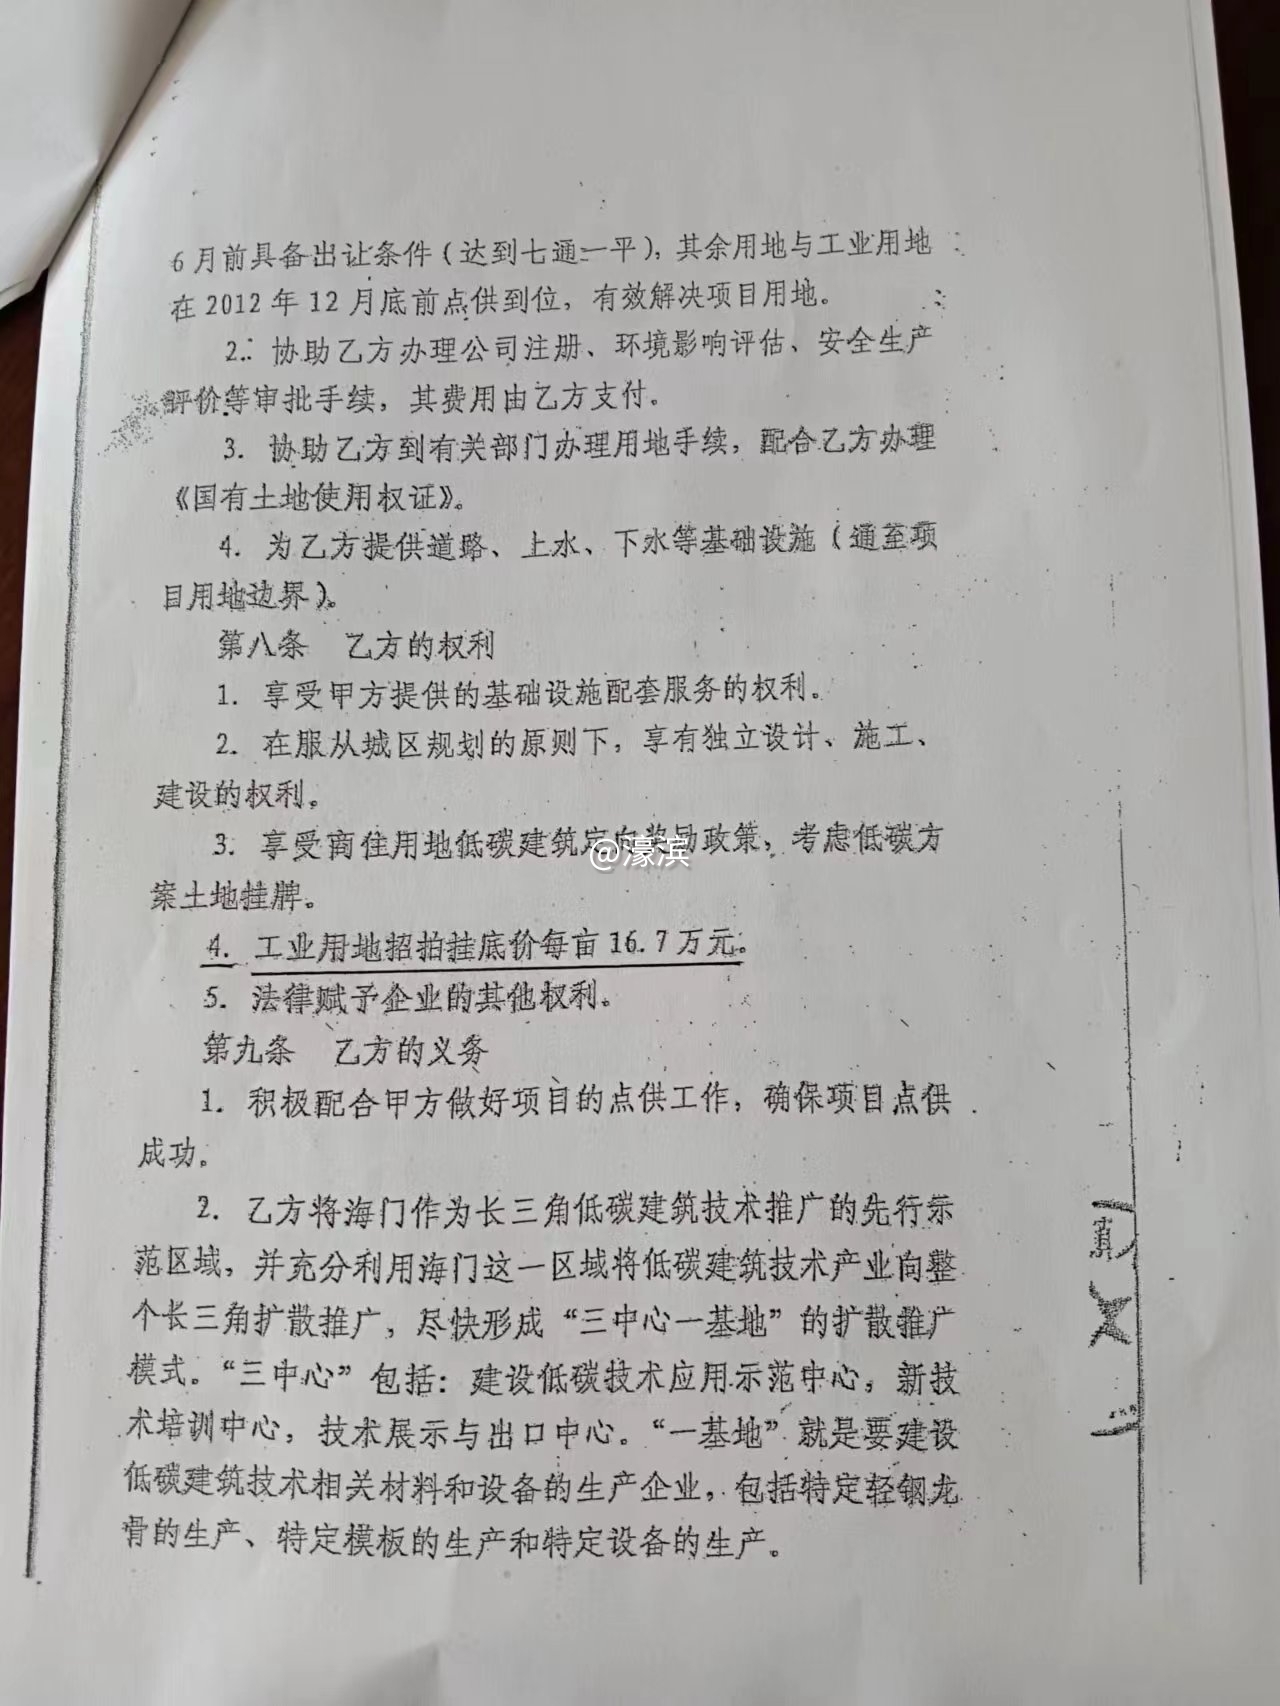 6月前具备出让条件(达到七通一平),其余用地与工业用地
在2012年12月底前点供到位,有效解决项目用地。
2. 协助乙方办理公司注册、环境影响评估、安全生产
评价等审批手续,其费用由乙方支付。
3. 协助乙方到有关部门办理用地手续,配合乙方办理
《国有土地使用权证》。
4. 为乙方提供道路、上水、下水等基础设施(通至项
目用地边界)。
第八条 乙方的权利
1. 享受甲方提供的基础设施配套服务的权利。
2. 在服从城区规划的原则下,享有独立设计、施工、
建设的权利。
3. 享受商住用地低碳建筑定向奖励政策,考虑低碳方
案土地挂牌。
@濠滨
4. 工业用地招拍挂底价每亩16.7万元。
5. 法律赋予企业的其他权利。
第九条 乙方的义务
1. 积极配合甲方做好项目的点供工作,确保项目点供
成功。
2. 乙方将海门作为长三角低碳建筑技术推广的先行示
范区域,并充分利用海门这一区域将低碳建筑技术产业向整
个长三角扩散推广,尽快形成“三中心一基地”的扩散推广
模式。“三中心”包括:建设低碳技术应用示范中心,新技
术培训中心,技术展示与出口中心。“一基地”就是要建设
低碳建筑技术相关材料和设备的生产企业,包括特定轻钢龙
骨的生产、特定模板的生产和特定设备的生产。